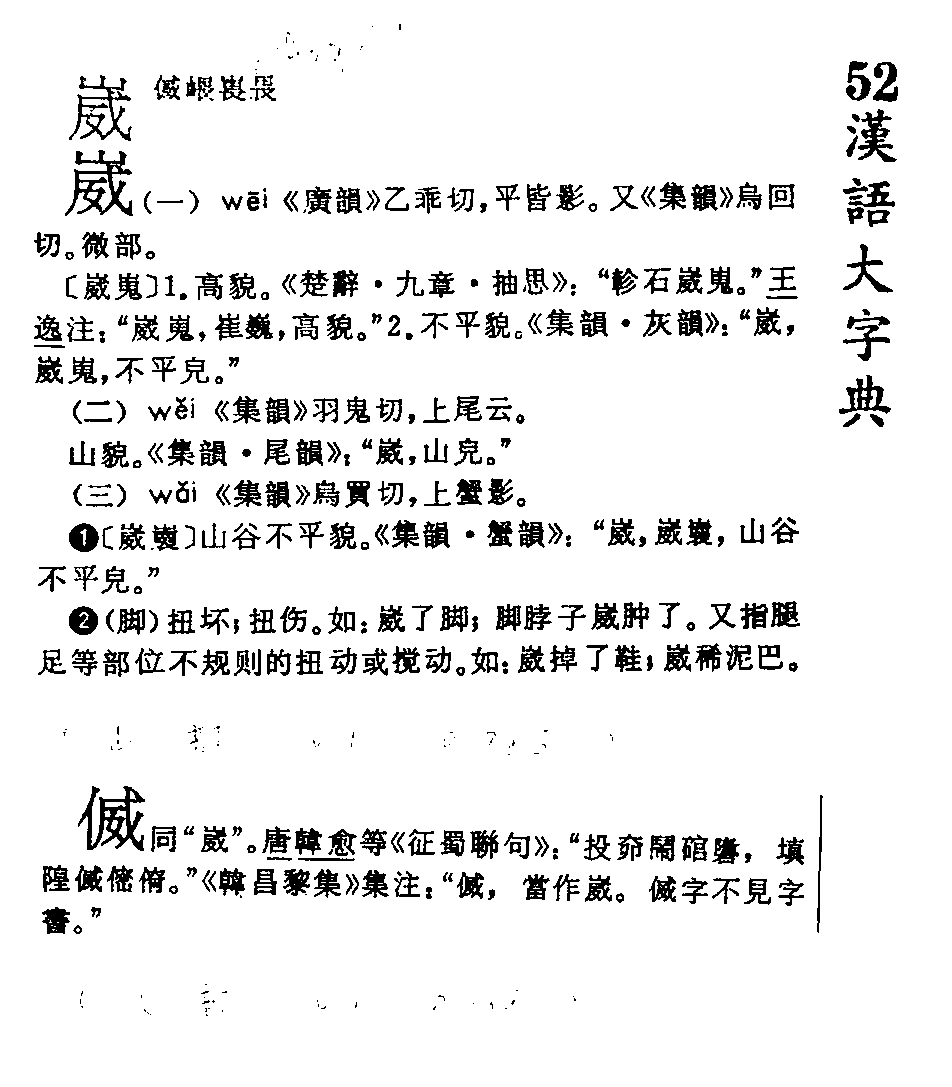 崴 㒑崐
崴(一) wēi 《廣韻》乙乖切,平皆影。又《集韻》烏回
切。微部。
〔崴嵬〕1.高貌。《楚辭·九章·抽思》:“軫石崴嵬。”王
逸注:“崴嵬,崔巍,高貌。”2.不平貌。《集韻·灰韻》:“崴,
崴嵬,不平皃。”
(二) wěi 《集韻》羽鬼切,上尾云。
山貌。《集韻·尾韻》:“崴,山皃。”
(三) wǎi 《集韻》烏買切,上蟹影。
❶〔崴〕山谷不平貌。《集韻·蟹韻》:“崴,崴,山谷
不平皃。”
❷(脚)扭坏;扭伤。如:崴了脚;脚脖子崴肿了。又指腿
足等部位不规则的扭动或搅动。如:崴掉了鞋;崴稀泥巴。
同“崴”。唐韓愈等《征蜀聯句》:“投奅鬧䃔,填
隍傄。”《韓昌黎集》集注:“,當作崴。字不見字
書。”
52
漢語大字典